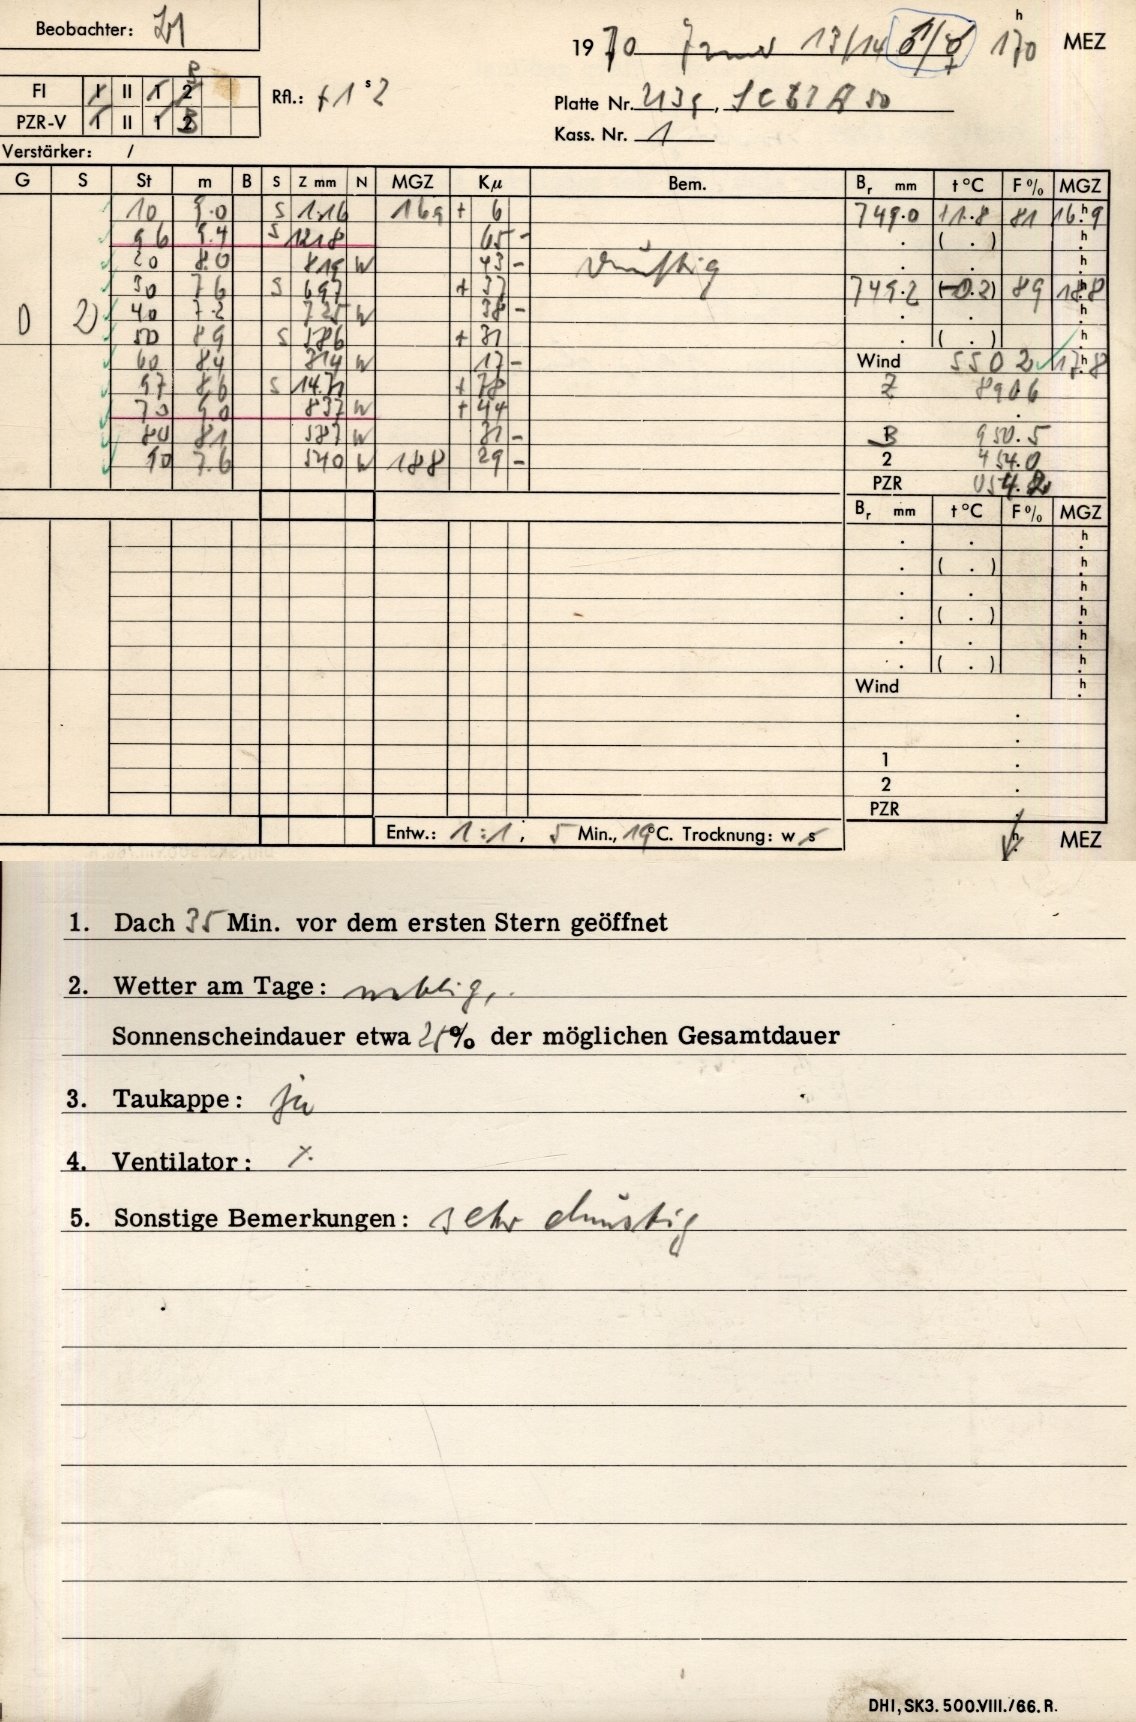 Beobachter:
1970 Januar 13/14 ♂/☿ 17h0 MEZ
FI I II 1 2
PZR-V I II 1 2 B
Rfl.: +1s2
Platte Nr. 2139,
Kass. Nr. 1
Verstärker: /
G S St m B S Z mm N MGZ Kμ Bem. Br mm t°C F% MGZ
10 9.0 S 1.16 169 + 6 749.0 +1.8 81 16h9
96 9.4 S 1218 65 - . ( . ) h
20 8.0 819 W 43 - dunstig . . h
30 7.6 S 697 + 37 749.2 (-0.2) 89 18h8
0 2 40 7.2 725 W 38 - . . h
50 8.9 S 586 + 31 . ( . ) h
60 8.4 814 W 17 - Wind 5502 17h8
97 8.6 S 14.71 + 78 Z 8906
70 9.0 837 W + 44 .
80 8.1 587 W 31 - B 950.5
90 7.6 540 W 188 29 - 2 454.0
PZR 054.2
Br mm t°C F% MGZ
. . h
. ( . ) h
. . h
. ( . ) h
. . h
. ( . ) h
Wind h
.
.
1 .
2 .
PZR .
Entw.: 1:1, 5 Min., 19°C. Trocknung: w s h MEZ
1. Dach 35 Min. vor dem ersten Stern geöffnet
2. Wetter am Tage: neblig,.
Sonnenscheindauer etwa 25% der möglichen Gesamtdauer
3. Taukappe: ja
4. Ventilator: /.
5. Sonstige Bemerkungen: sehr dunstig
DHI, SK3. 500.VIII./66. R.